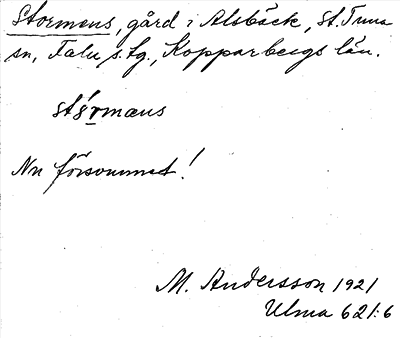 Stormens, gård i Alsbäck, St. Tuna
sn, Falu s. tg., Kopparbergs län.
stórmæns
Nn försvunnet!
M. Andersson 1921
Ulma 621:6